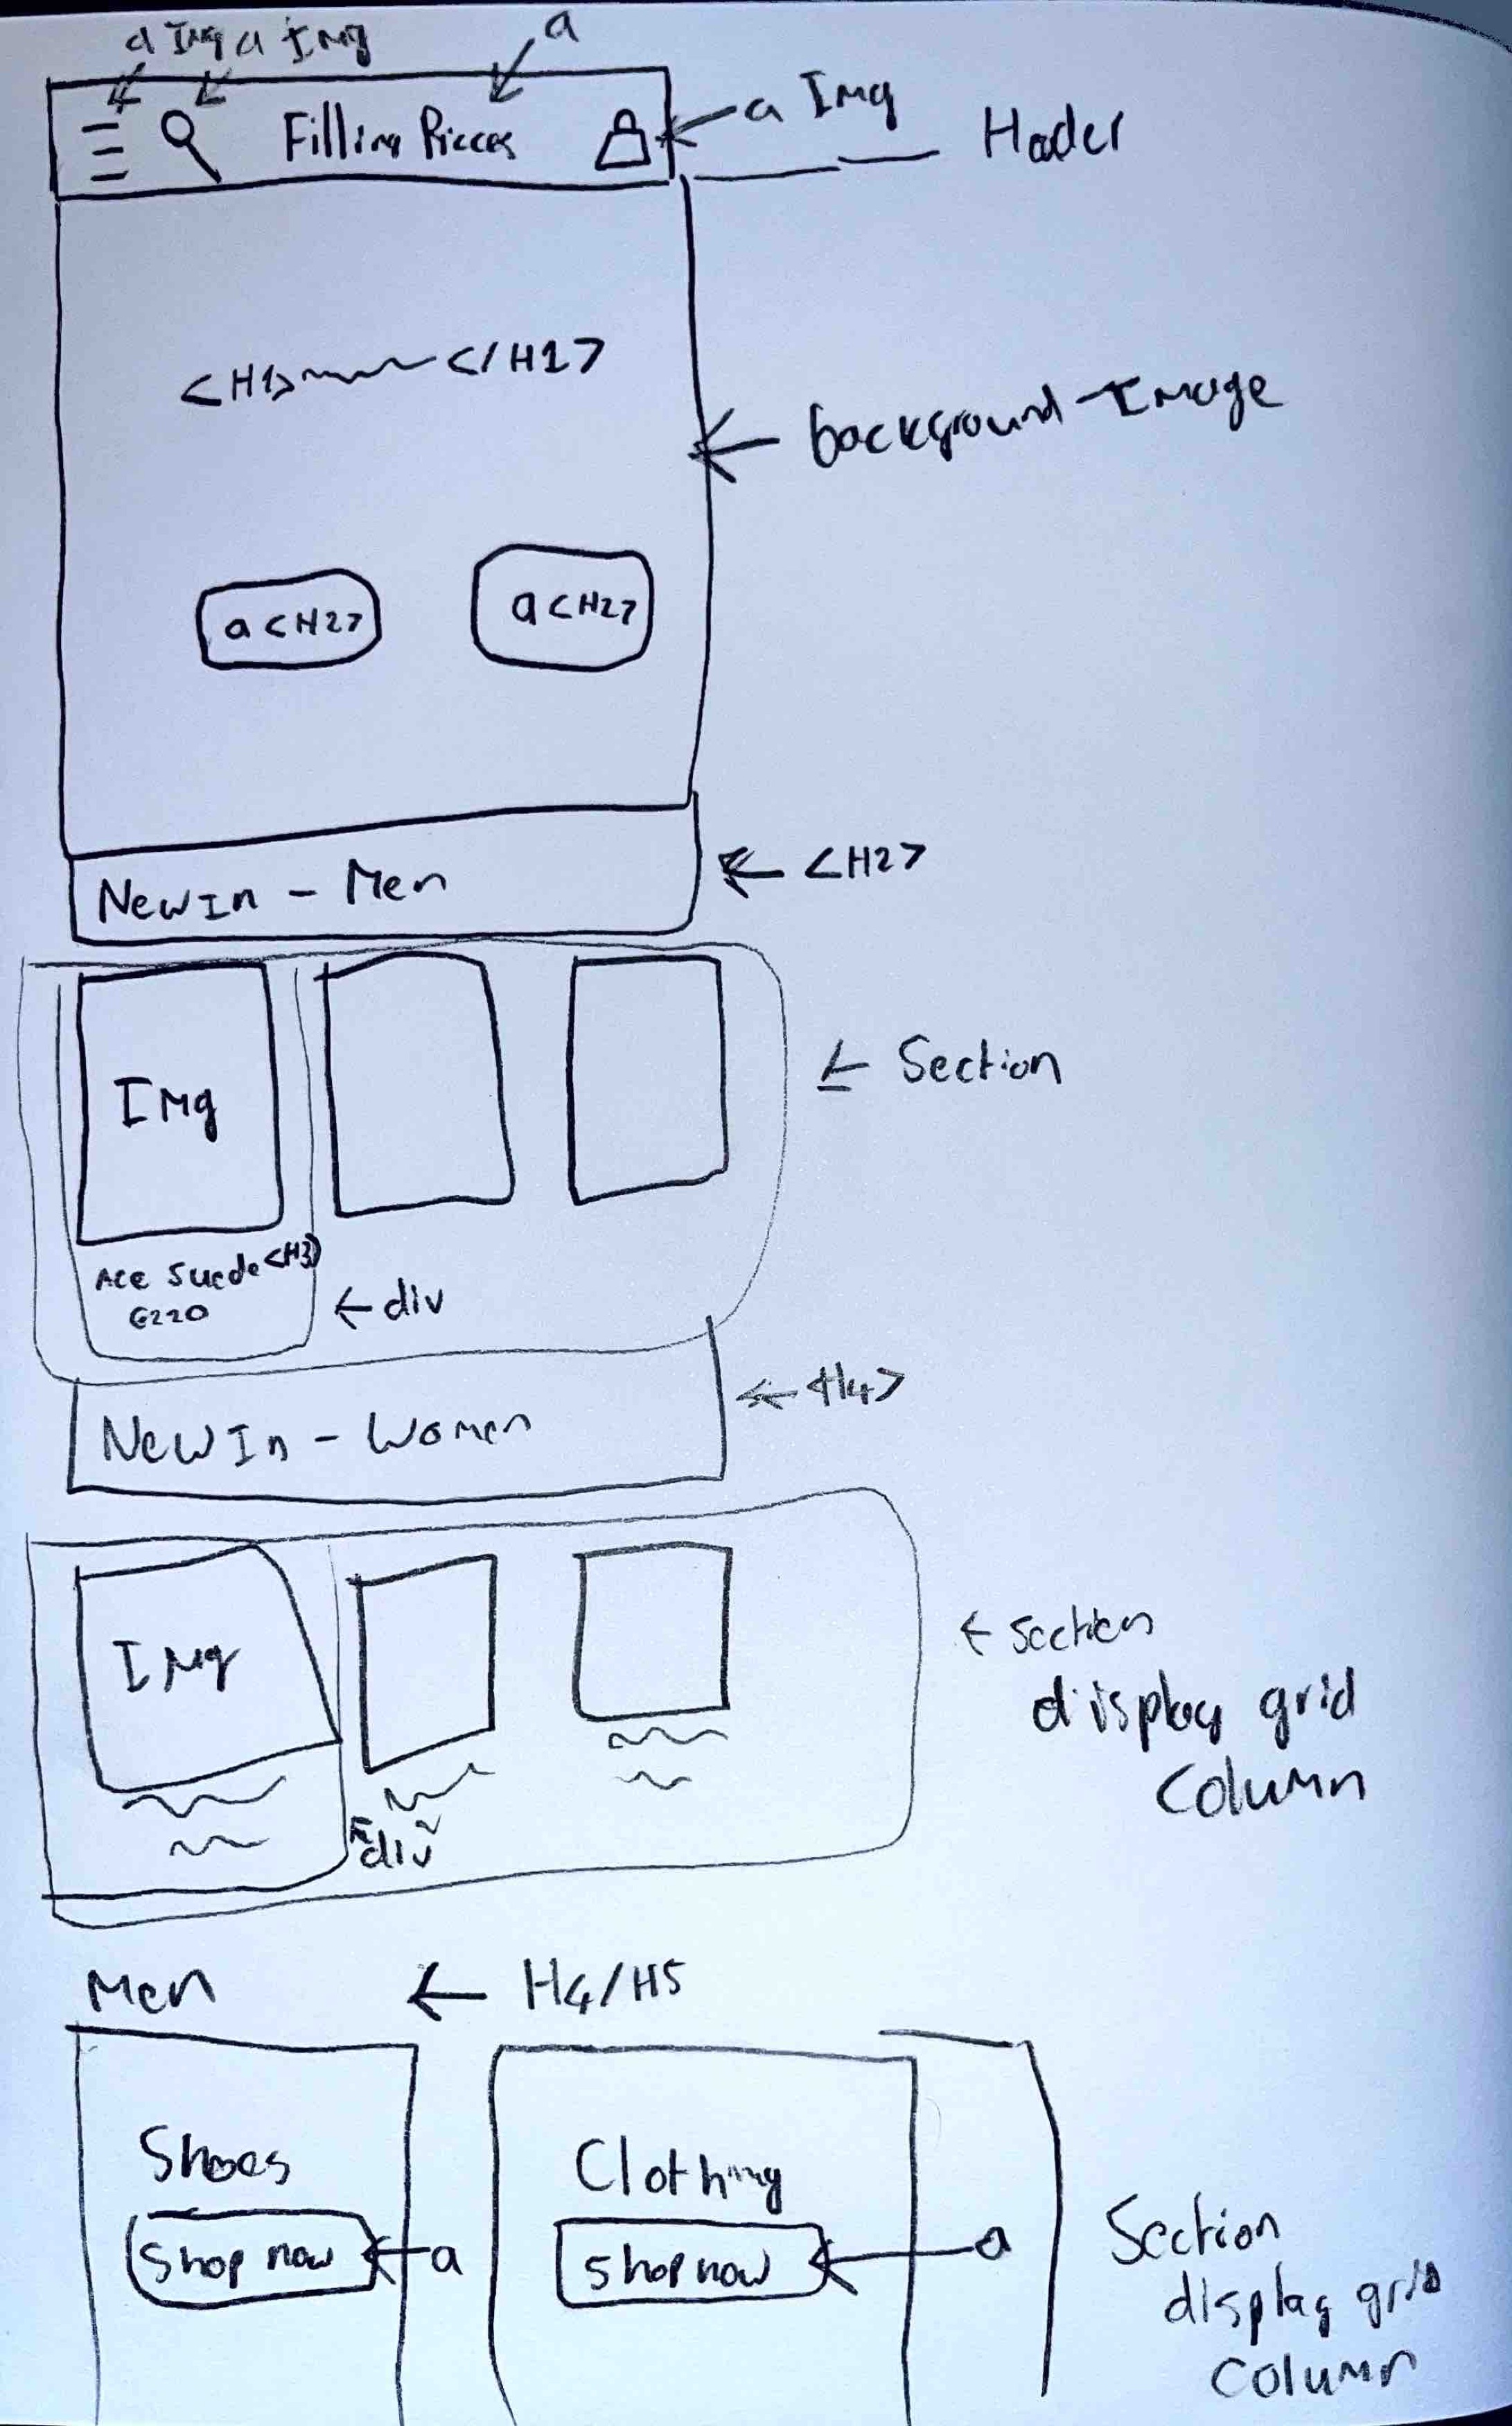 a Img a Img a
Filling Pieces
a Img
Header
<H1> </H1>
background-Image
a <H2>
a <H2>
New In - Men
<H2>
Img
Section
Ace Suede <H3>
€220
div
<H4>
New In - Women
Img
Section
display grid
column
div
Men
H4/H5
Shoes
Clothing
Shop now
a
Shop now
a
Section
display grid
column